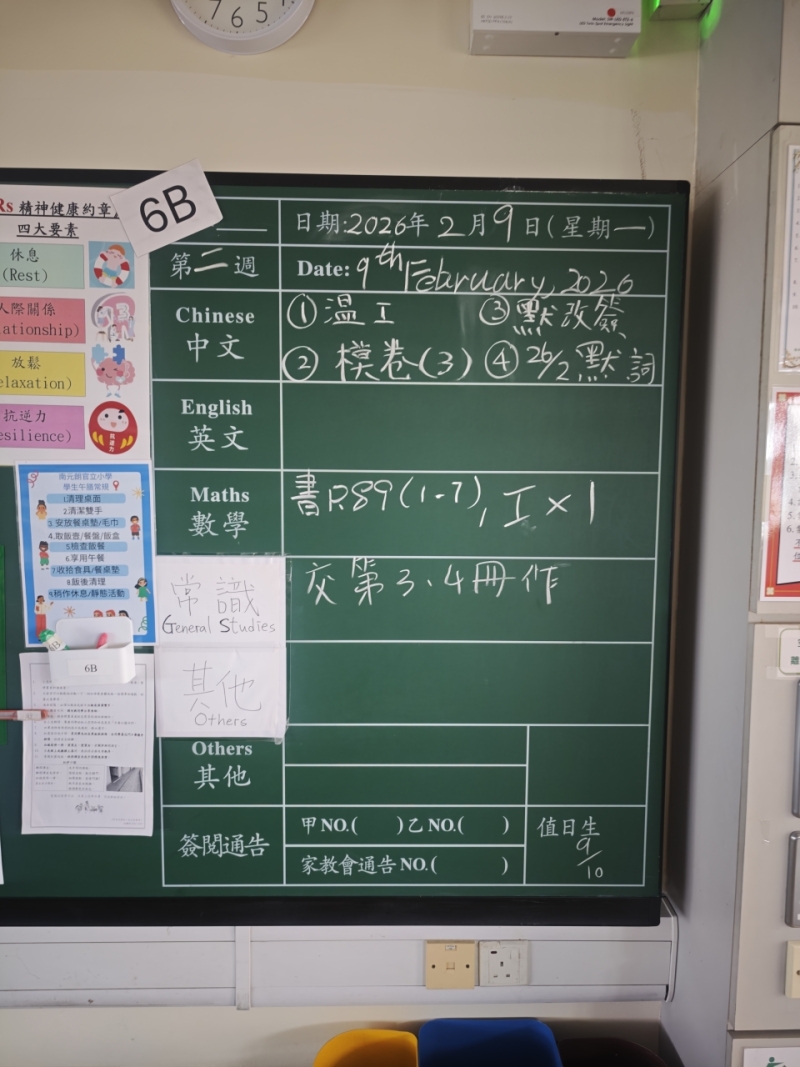 7 6 5
Rs 精神健康約章
四大要素
休息
(Rest)
人際關係
放鬆
抗逆力
6B
日期:2026年2月9日(星期一)
第二週
Date: 9th February, 2026
Chinese
中文
① 溫工 ③ 默改簽
② 模卷(3) ④ 26/2 默詞
English
英文
Maths
數學
書P.89(1-7), 工×1
常識
General Studies
交第3、4冊作
其他
Others
Others
其他
簽閱通告
甲NO.( )乙NO.( )
家教會通告NO.( )
值日生
9/10
南元朗官立小學
學生午膳常規
1清理桌面
2.清潔雙手
3.安放餐桌墊/毛巾
4.取飯壺/餐盤/飯盒
5檢查飯餐
6.享用午餐
7收拾食具/餐桌墊
8飯後清理
9稍作休息/靜態活動
6B